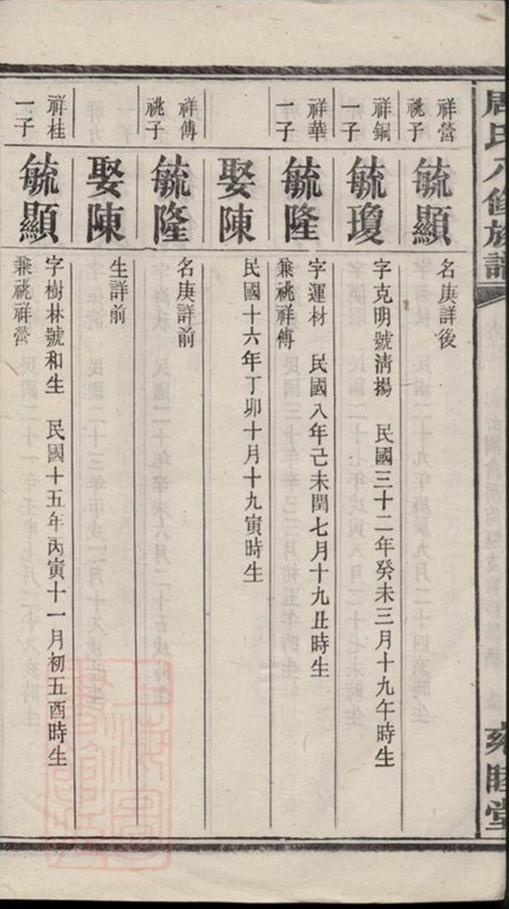 周氏八修族譜
雍睦堂
祥營
祧子
毓顯
名庚詳後
祥銅
一子
毓瓊
字克明號清揚 民國三十二年癸未三月十九午時生
祥華
一子
毓隆
字運材 民國八年己未閏七月十九丑時生
兼祧祥傅
娶陳
民國十六年丁卯十月十九寅時生
祥傅
祧子
毓隆
名庚詳前
娶陳
生詳前
祥桂
一子
毓顯
字樹林號和生 民國十五年丙寅十一月初五酉時生
兼祧祥營